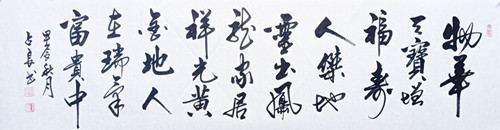 物華
天寶增
福壽
人傑地
靈出鳳
龍家居
祥光黃
金地人
在瑞氣
富貴中
甲辰秋月